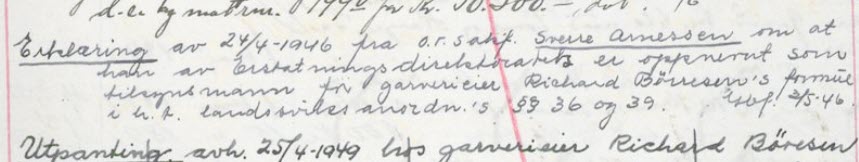 d.e. by matrnr. 1990 for Kr. 10.200.-, dat. 16
Erklæring av 24/4-1946 fra o.r.sakf. Sverre Arnessen om at
han av Erstatningsdirektoratet er oppnevnt som
tilsynsmann for garverieier Richard Börresen's formue
i h.t. landssviksanordn.'s §§ 36 og 39. Tgbf. 2/5-46.
Utpanting avh. 25/4-1949 hos garverieier Richard Böresen